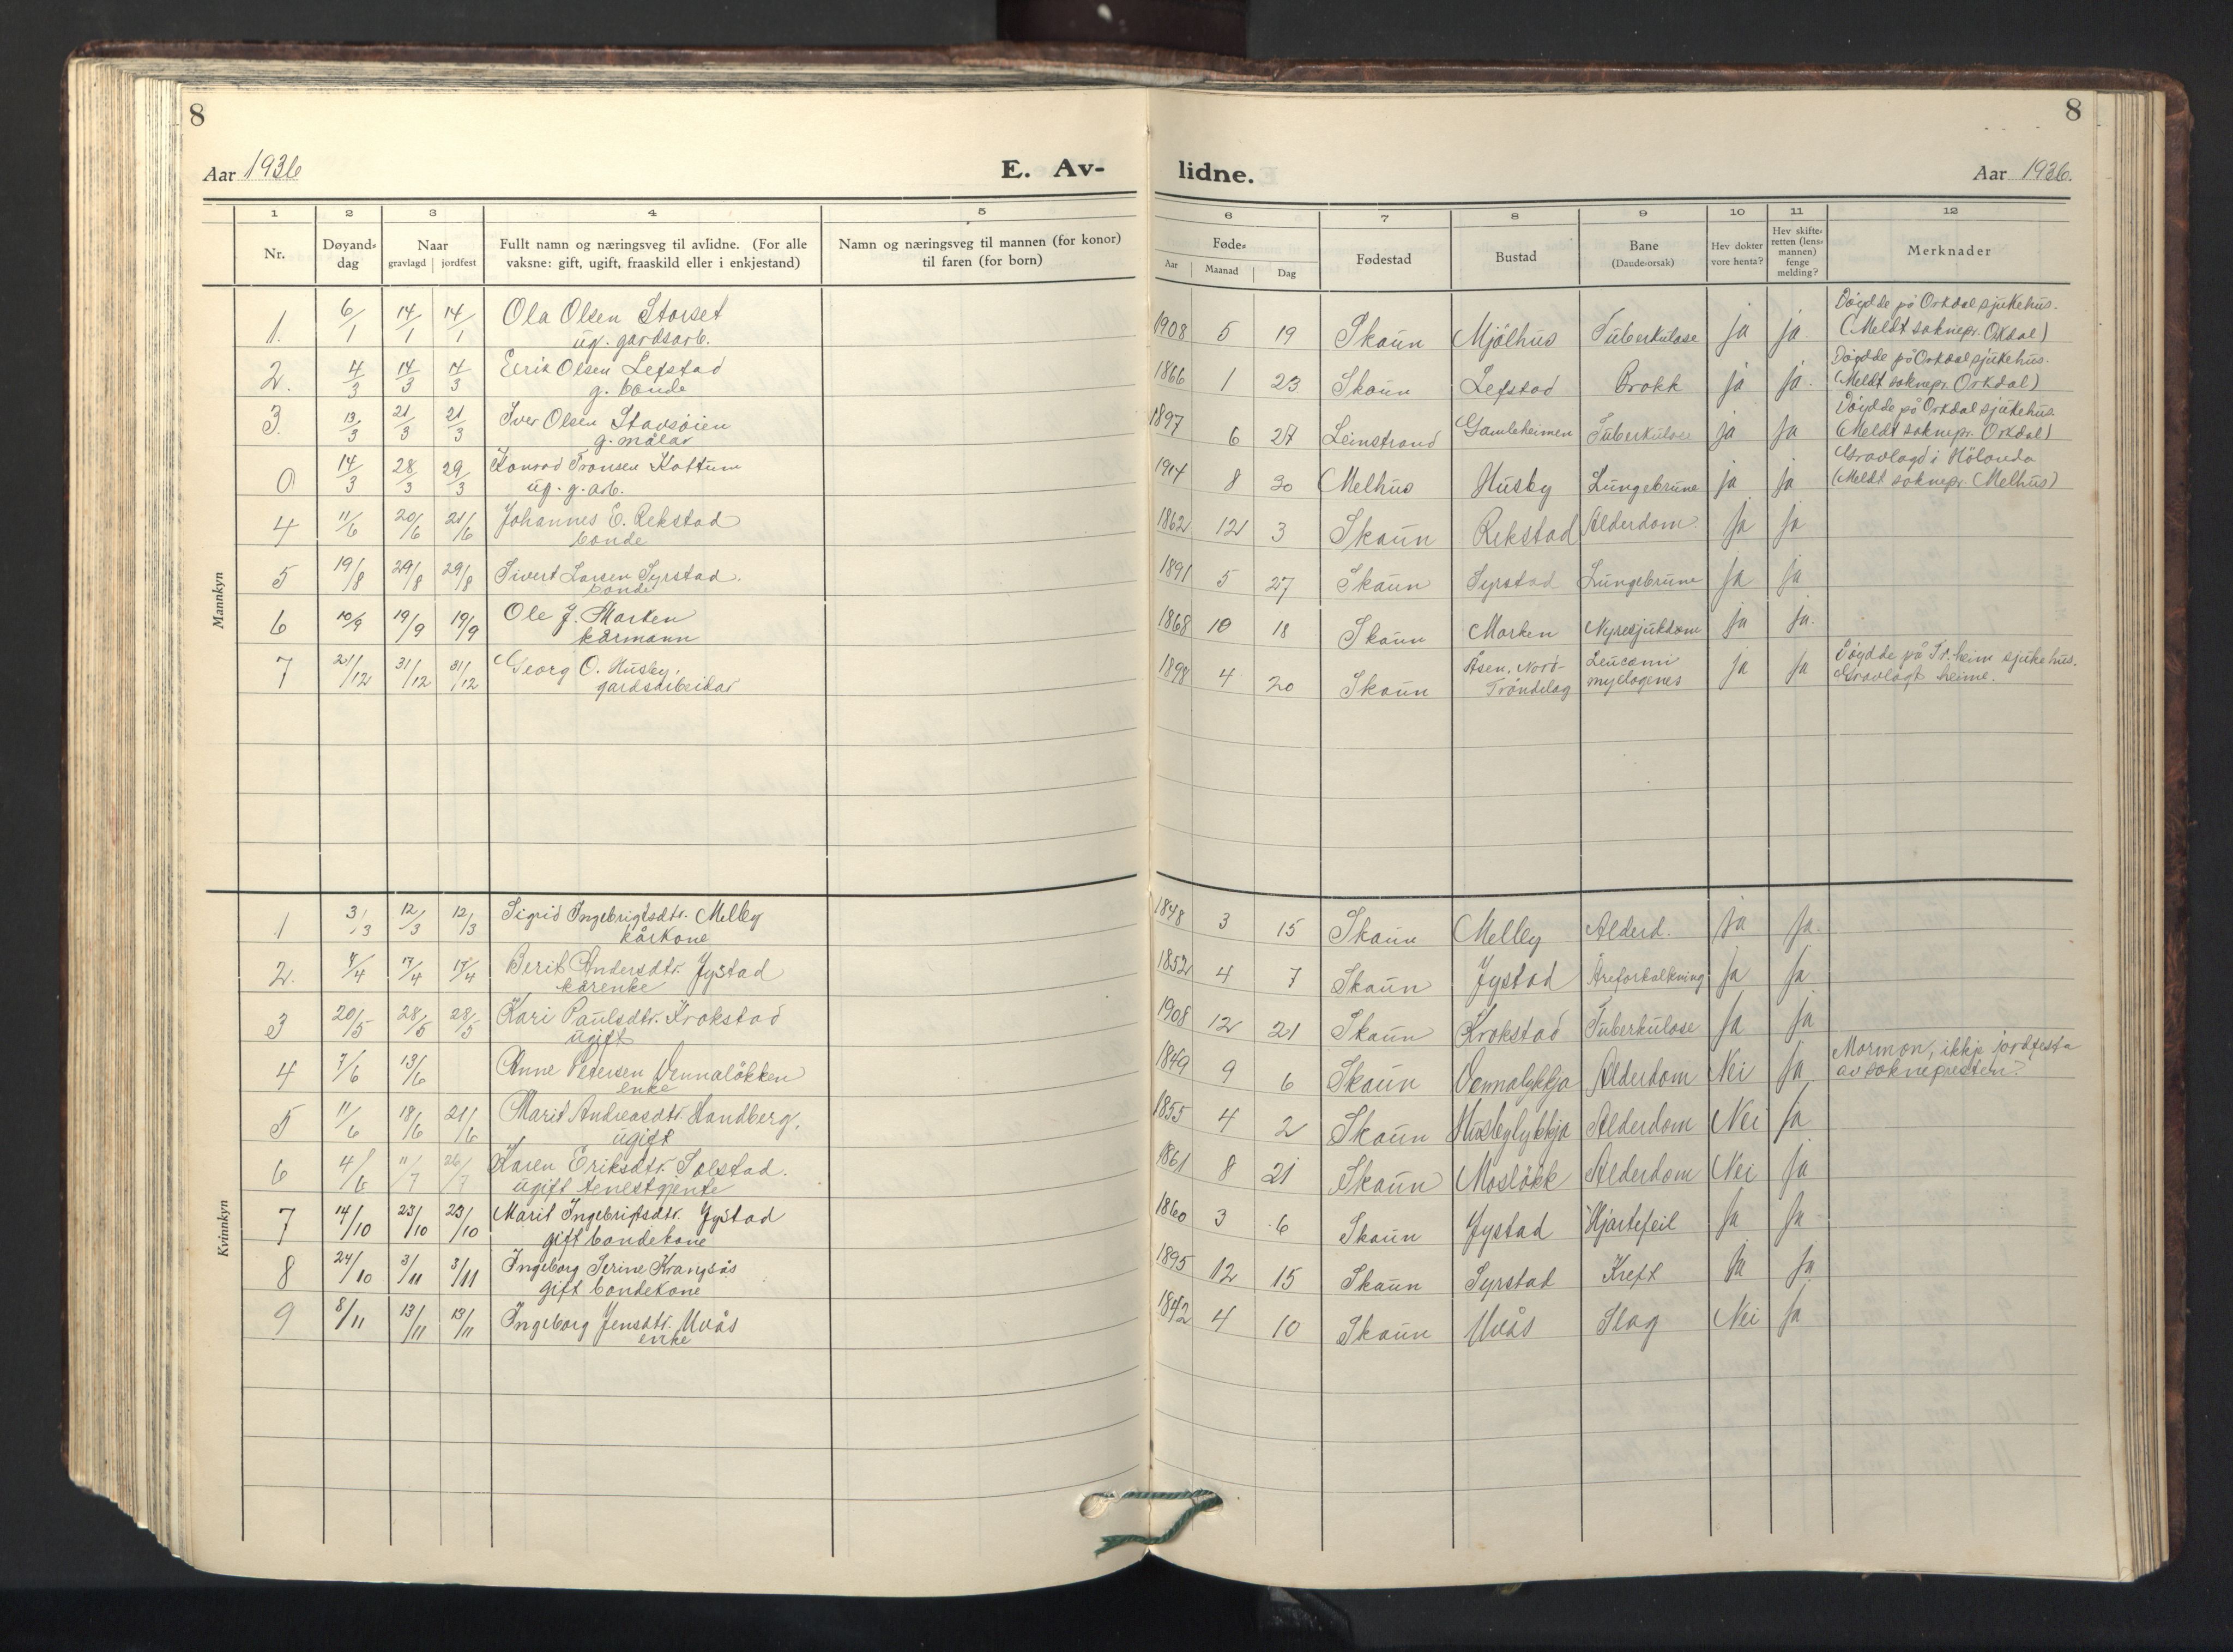 8
8
Aar 1936
E. Av-
lidne.
Aar 1936.
1 2 3 4 5 6 7 8 9 10 11 12
Nr.
Døyand-
dag
Naar
gravlagd jordfest
Fullt namn og næringsveg til avlidne. (For alle
vaksne: gift, ugift, fraaskild eller i enkjestand)
Namn og næringsveg til mannen (for konor)
til faren (for born)
Føde-
Aar Maanad Dag
Fødestad
Bustad
Bane
(Daude-orsak)
Hev dokter
vore henta?
Hev skifte-
retten (lens-
mannen)
fenge
melding?
Merknader
Mannkyn
1. 6/1 14/1 14/1 Ola Olsen Storset 1908 5 19 Skaun Mjölhus Tuberkulose ja ja. Döydde på Orkdal sjukehus.
ug. gardsarb. (Meldt soknepr. Orkdal)
2. 4/3 14/3 14/3 Eirik Olsen Lefstad 1866 1 23 Skaun Lefstad Brokk ja ja. Döydde på Orkdal sjukehus.
g. bonde (Meldt soknepr. Orkdal)
3. 13/3 21/3 21/3 Iver Olsen Stavsöien 1897 6 27 Leinstrand Gamleheimen Tuberkulose ja ja Döydde på Orkdal sjukehus
g. målar (Meldt soknepr. Orkdal)
0 14/3 28/3 29/3 Konrad Tronsen Kottum 1914 8 30 Melhus Husby Lungebrune ja ja Gravlagd i Hölonda
ug. g. arb. (Meldt soknepr. Melhus)
4 11/6 20/6 21/6 Johannes E. Rekstad 1862 12 3 Skaun Rekstad Alderdom. ja ja
bonde
5 19/8 29/8 29/8 Sivert Larsen Syrstad. 1891 5 27 Skaun Syrstad Lungebrune ja ja
bonde
6 10/9 19/9 19/9 Ole J. Marken 1868 10 18 Skaun Marken Nyresjukdom ja ja.
kårmann
7 21/12 31/12 31/12 Georg O. Husby. 1898 4 20 Skaun Åsen, Nord- Leucami ja ja Döydde på Tr.heim sjukehus.
gardsarbeidar Tröndelag myelogenes Gravlagt heime.
Kvinnkyn
1 3/3 12/3 12/3 Sigrid Ingebrigtsdtr. Melby 1848 3 15 Skaun Melby Alderd. ja ja.
kårkone
2. 7/4 17/4 17/4 Berit Andersdtr. Jystad 1852 4 7 Skaun Jystad Åreforkalkning ja ja
kårenke
3 20/5 28/5 28/5 Kari Paulsdtr. Krokstad 1908 12 21 Skaun Krokstad Tuberkulose ja ja
ugift
4 7/6 13/6 Anne Petersen Vennalökken 1849 9 6 Skaun Vennalykkja Alderdom Nei ja Mormon, ikkje jordfesta
enke av soknepresten.
5 11/6 18/6 21/6 Marit Andreasdtr. Sandberg. 1855 4 2 Skaun Husbylykkja Alderdom Nei ja
ugift
6 4/6 11/7 26/7 Karen Eriksdtr. Solstad. 1861 8 21 Skaun Moslökk Alderdom Nei ja
ugift tenestgjente
7 14/10 23/10 23/10 Marit Ingebrigtsdtr. Jystad 1860 3 6 Skaun Jystad Hjartefeil ja ja
gift bondekone
8 24/10 3/11 3/11 Ingeborg Serine Krangsås 1895 12 15 Skaun Syrstad Kreft ja ja
gift bondekone
9 8/11 13/11 13/11 Ingeborg Jensdtr. Uvås 1842 4 10 Skaun Uvås Slag Nei ja
enke